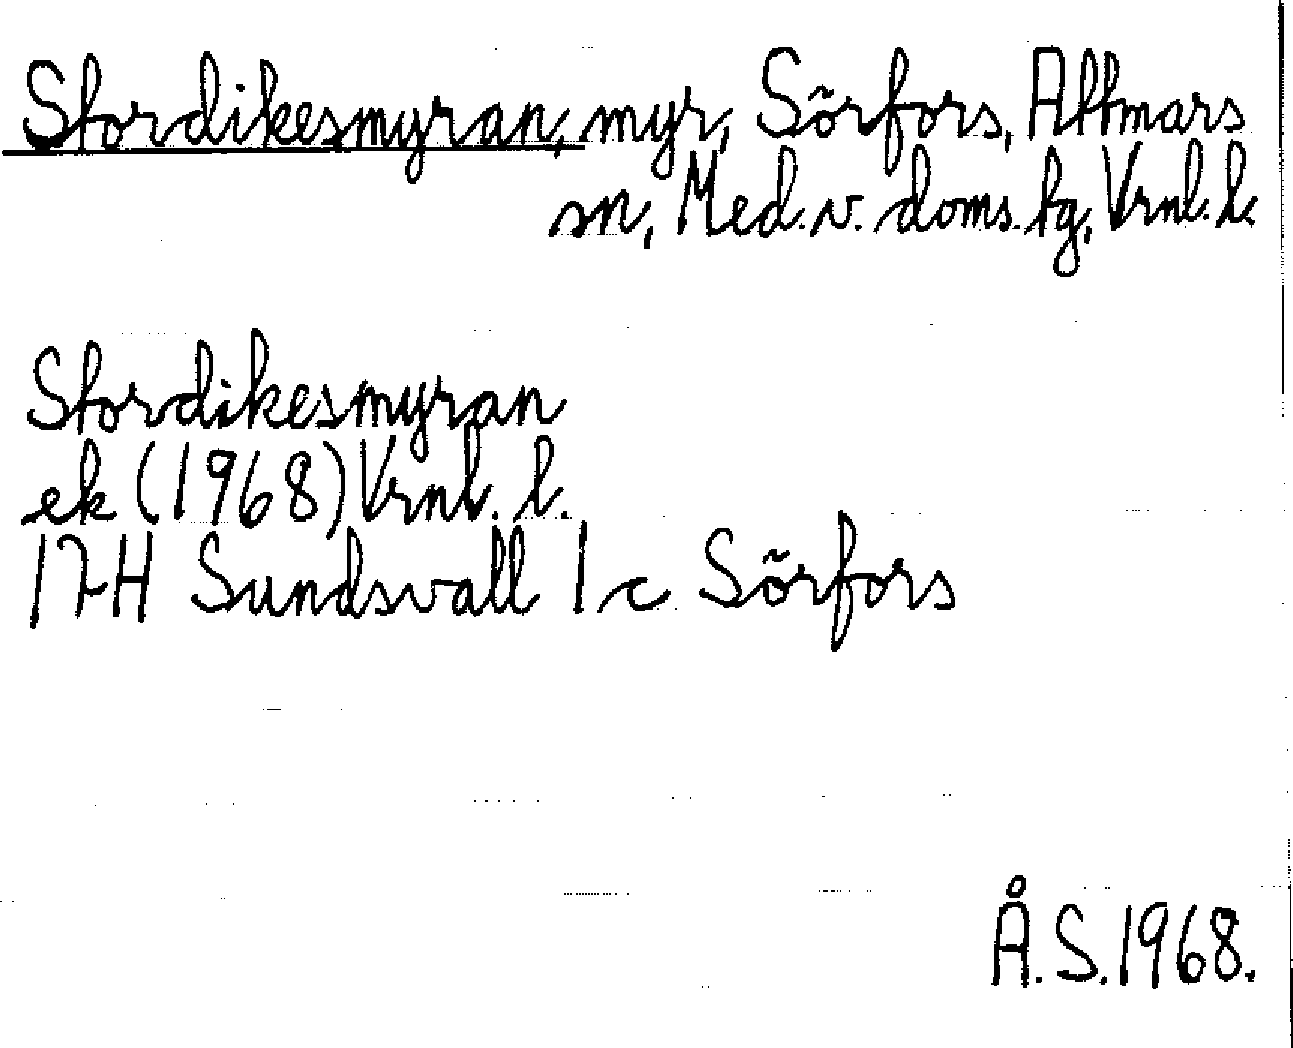 Stordikesmyran, myr, Sörfors, Attmars
sn, Med. v. doms. tg, Vrnl. l.
Stordikesmyran
ek (1968) Vrnl. l.
17H Sundsvall 1 c Sörfors
Å. S. 1968.